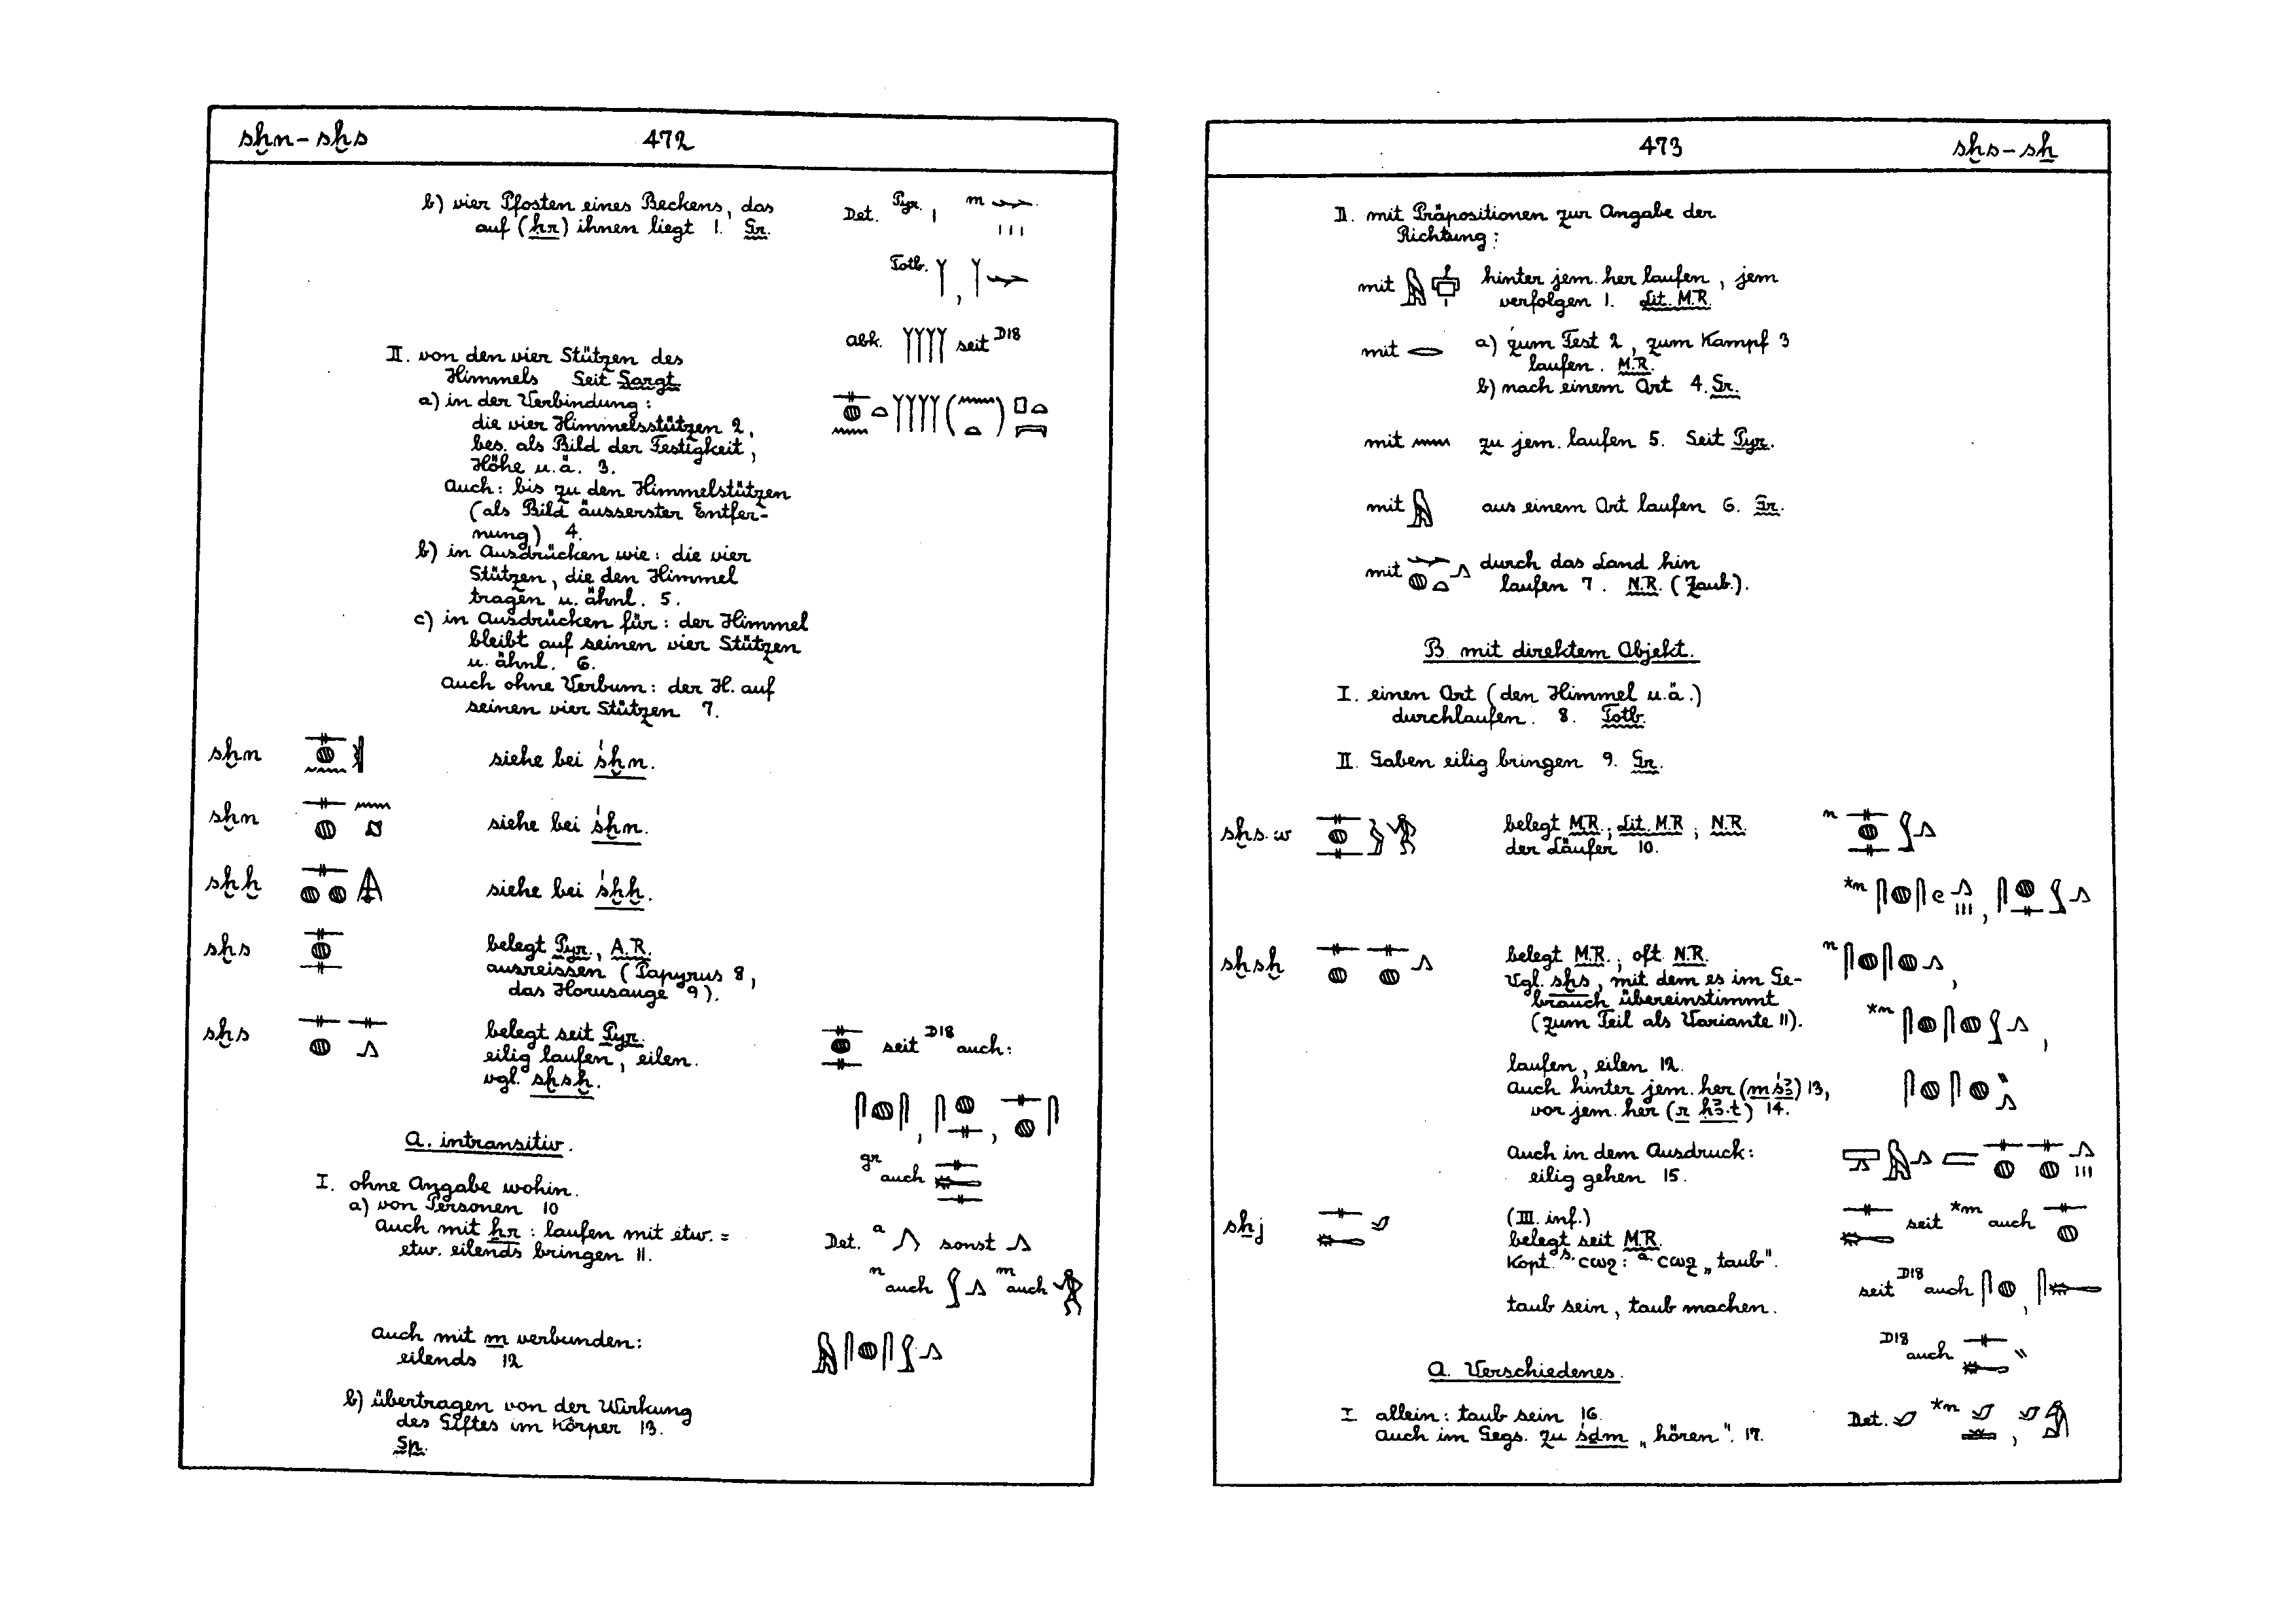 sḫn – sḫs 472
b) vier Pfosten eines Beckens, das
auf (ḥr) ihnen liegt 1. Gr.
Det. Pyr. , m
Totb. ,
abk. seit D18
II. von den vier Stützen des
Himmels Seit Sargt.
a) in der Verbindung:
die vier Himmelsstützen 2,
bes. als Bild der Festigkeit,
Höhe u. ä. 3.
Auch: bis zu den Himmelstützen
(als Bild äusserster Entfer-
nung) 4.
b) in Ausdrücken wie: die vier
Stützen, die den Himmel
tragen u. ähnl. 5.
c) in Ausdrücken für: der Himmel
bleibt auf seinen vier Stützen
u. ähnl. 6.
Auch ohne Verbum: der H. auf
seinen vier Stützen 7.
sḫn siehe bei śḫn.
sḫn siehe bei śḫn.
sḫḫ siehe bei śḫḫ.
sḫs belegt Pyr., A.R.
ausreissen (Papyrus 8,
das Horusauge 9).
sḫs belegt seit Pyr.
eilig laufen, eilen.
vgl. sḫsḫ.
seit D18 auch:
gr auch
A. intransitiv.
I. ohne Angabe wohin.
a) von Personen 10
Auch mit ḫr: laufen mit etw. =
etw. eilends bringen 11.
Det. a sonst
n auch m auch
Auch mit m verbunden:
eilends 12
b) übertragen von der Wirkung
des Giftes im Körper 13.
Sp.
473 sḫs – sẖ
II. mit Präpositionen zur Angabe der
Richtung:
mit hinter jem. her laufen, jem
verfolgen 1. Lit. M.R.
mit a) zum Fest 2, zum Kampf 3
laufen. M.R.
b) nach einem Ort 4. Gr.
mit zu jem. laufen 5. Seit Pyr.
mit aus einem Ort laufen 6. Gr.
mit durch das Land hin
laufen 7. N.R. (Zaub.).
B mit direktem Objekt.
I. einen Ort (den Himmel u. ä.)
durchlaufen. 8. Totb.
II. Gaben eilig bringen 9. Gr.
sḫs.w belegt M.R.; Lit. M.R; N.R.
der Läufer 10.
n
*n ,
sḫsḫ belegt M.R.; oft N.R.
Vgl. sḫs, mit dem es im Ge-
brauch übereinstimmt
(zum Teil als Variante 11).
n ,
*n ,
laufen, eilen 12.
Auch hinter jem. her (m śꜣ) 13,
vor jem. her (r ḥꜣ.t) 14.
Auch in dem Ausdruck:
eilig gehen 15.
sẖj (III. inf.)
belegt seit M.R.
Kopt. S. ⲥⲱϩ: A. ⲥⲱϩ „taub".
taub sein, taub machen.
seit *m auch
seit D18 auch ,
D18 auch
A. Verschiedenes.
I allein: taub sein 16.
Auch im Gegs. zu śḏm „hören". 17.
Det. *n ,